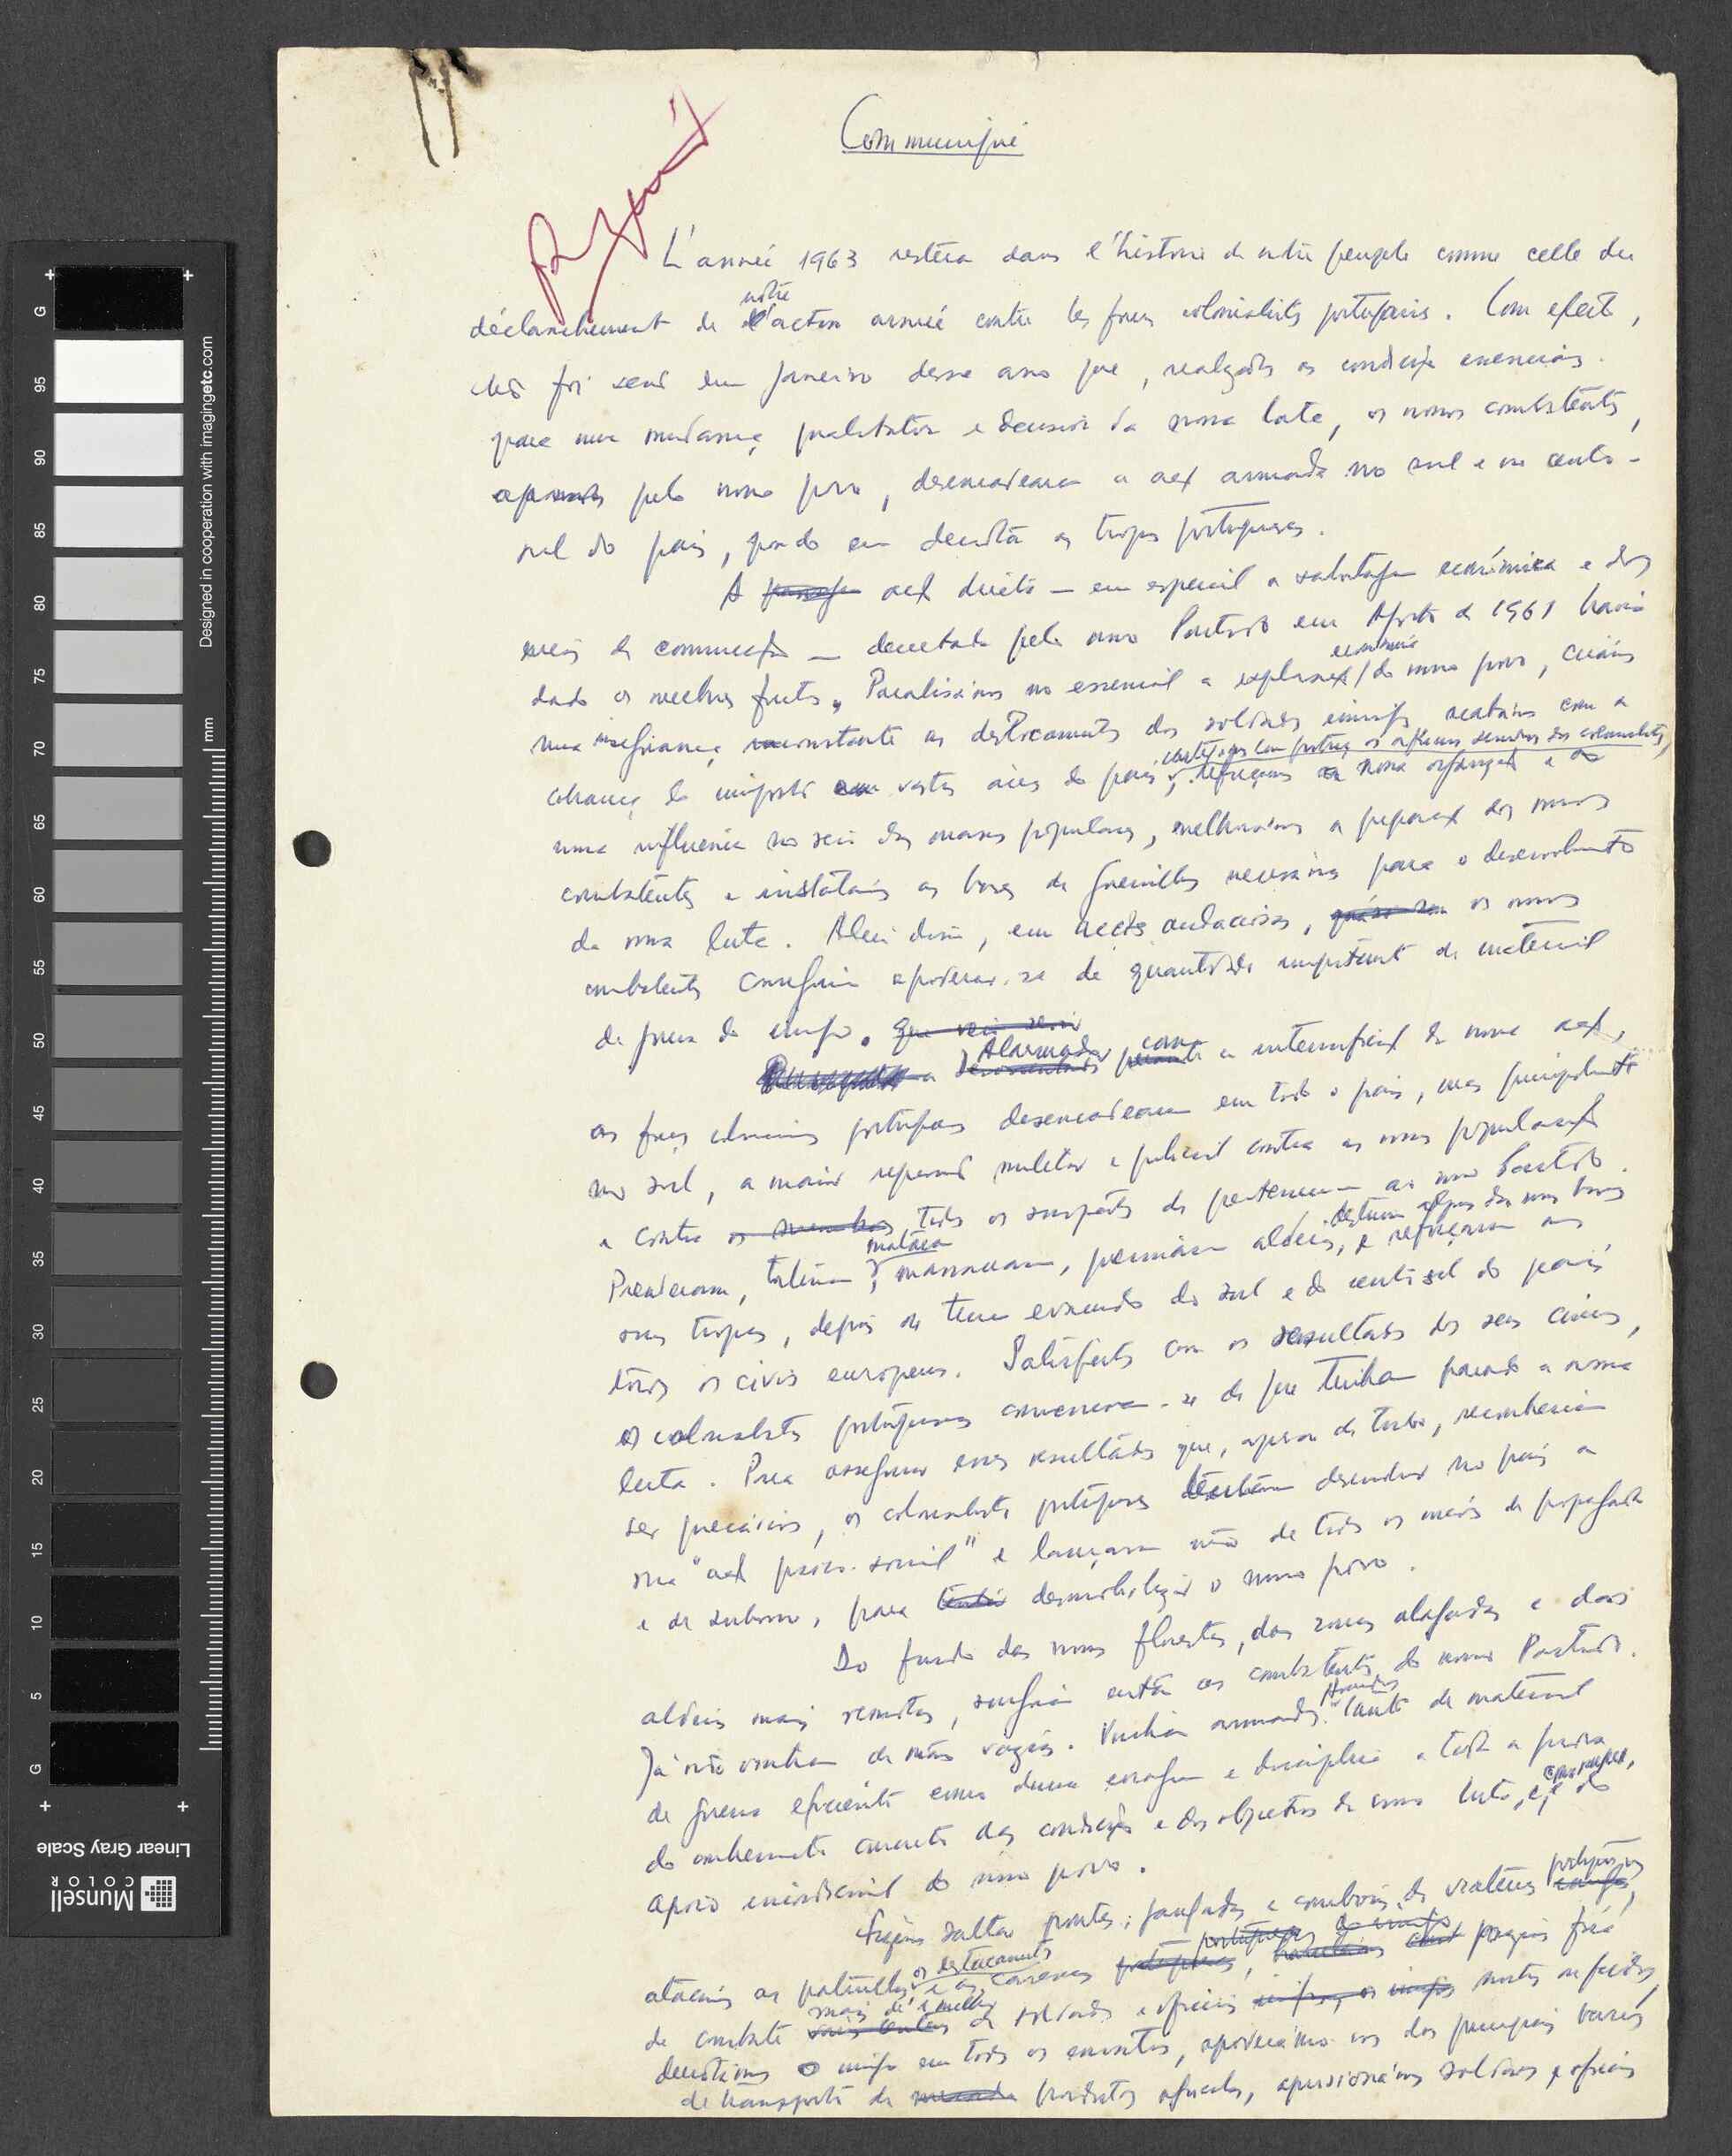 Communiqué
L'année 1963 restera dans l'histoire de notre peuple comme celle du
notre
déclanchement de l'action armée contre les forces colonialistes portugaises. Com efeito,
foi em Janeiro desse ano que, realizadas as condições essenciais
para uma mudança qualitativa e decisiva da nossa luta, os nossos combatentes,
apoiados pelo nosso povo, desencadearam a acção armada no sul e no centro-
sul do país, pondo em derrota as tropas portuguesas.
A acção directa — em especial a sabotagem económica e dos
meios de comunicação — decretada pelo nosso Partido em Agosto de 1961 havia
económica
dado os melhores frutos. Paralisámos no essencial a exploração do nosso povo, criámos
uma insegurança constante nos deslocamentos dos soldados inimigos, acabámos com a
os colonialistas,
cobrança do imposto em vastas áreas do país, reforçámos a nossa organização e a
nossa influência no seio das massas populares, melhorámos a preparação dos nossos
combatentes e instalámos as bases de guerrilhas necessárias para o desenvolvimento
da nossa luta. Além disso, em acções audaciosas, os nossos
combatentes conseguiram apoderar-se de quantidade importante de material
de guerra do inimigo.
Alarmados com a intensificação da nossa acção,
as forças coloniais portuguesas desencadearam em todo o país, mas principalmente
no sul, a maior repressão militar e policial contra as nossas populações
e contra todos os suspeitos de pertencerem ao nosso Partido.
mataram
destruiram algumas das nossas bases
Prenderam, torturaram, massacraram, queimaram aldeias, e reforçaram as
suas tropas, depois de terem evacuado do sul e do centro sul do país
todos os civis europeus. Satisfeitos com os resultados dos seus crimes,
os colonialistas portugueses convenceram-se de que tinham parado a nossa
luta. Para assegurar esses resultados que, apesar de tudo, reconheciam
ser precários, os colonialistas portugueses tentaram desenvolver no país a
sua "acção psico-social" e lançaram mão de todos os meios de propaganda
e de suborno, para desmobilizar o nosso povo.
Do fundo das nossas florestas, das zonas alagadas e das
aldeias mais remotas, surgiram então os combatentes do nosso Partido.
Armados
Já não vinham de mãos vazias. Vinham armados. tanto de material
de guerra eficiente como duma coragem e disciplina a toda a prova
do conhecimento concreto das condições e dos objectivos da nossa luta, e do
apoio incondicional do nosso povo.
portugueses
Fizemos saltar pontes, jangadas e comboios de viaturas
os destacamentos
atacámos as patrulhas e as casernas
mais de 1 milhar
de combate de soldados e oficiais mortos ou feridos,
derrotámos o inimigo em todos os encontros, apoderámo-nos dos principais barcos
de transporte de produtos agrícolas, aprisionámos soldados e oficiais
G
95
90
85
80
75
70
65
60
55
50
45
40
35
30
25
20
15
10
5
G
mm
Designed in cooperation with imagingetc.com
Linear Gray Scale
Munsell
COLOR